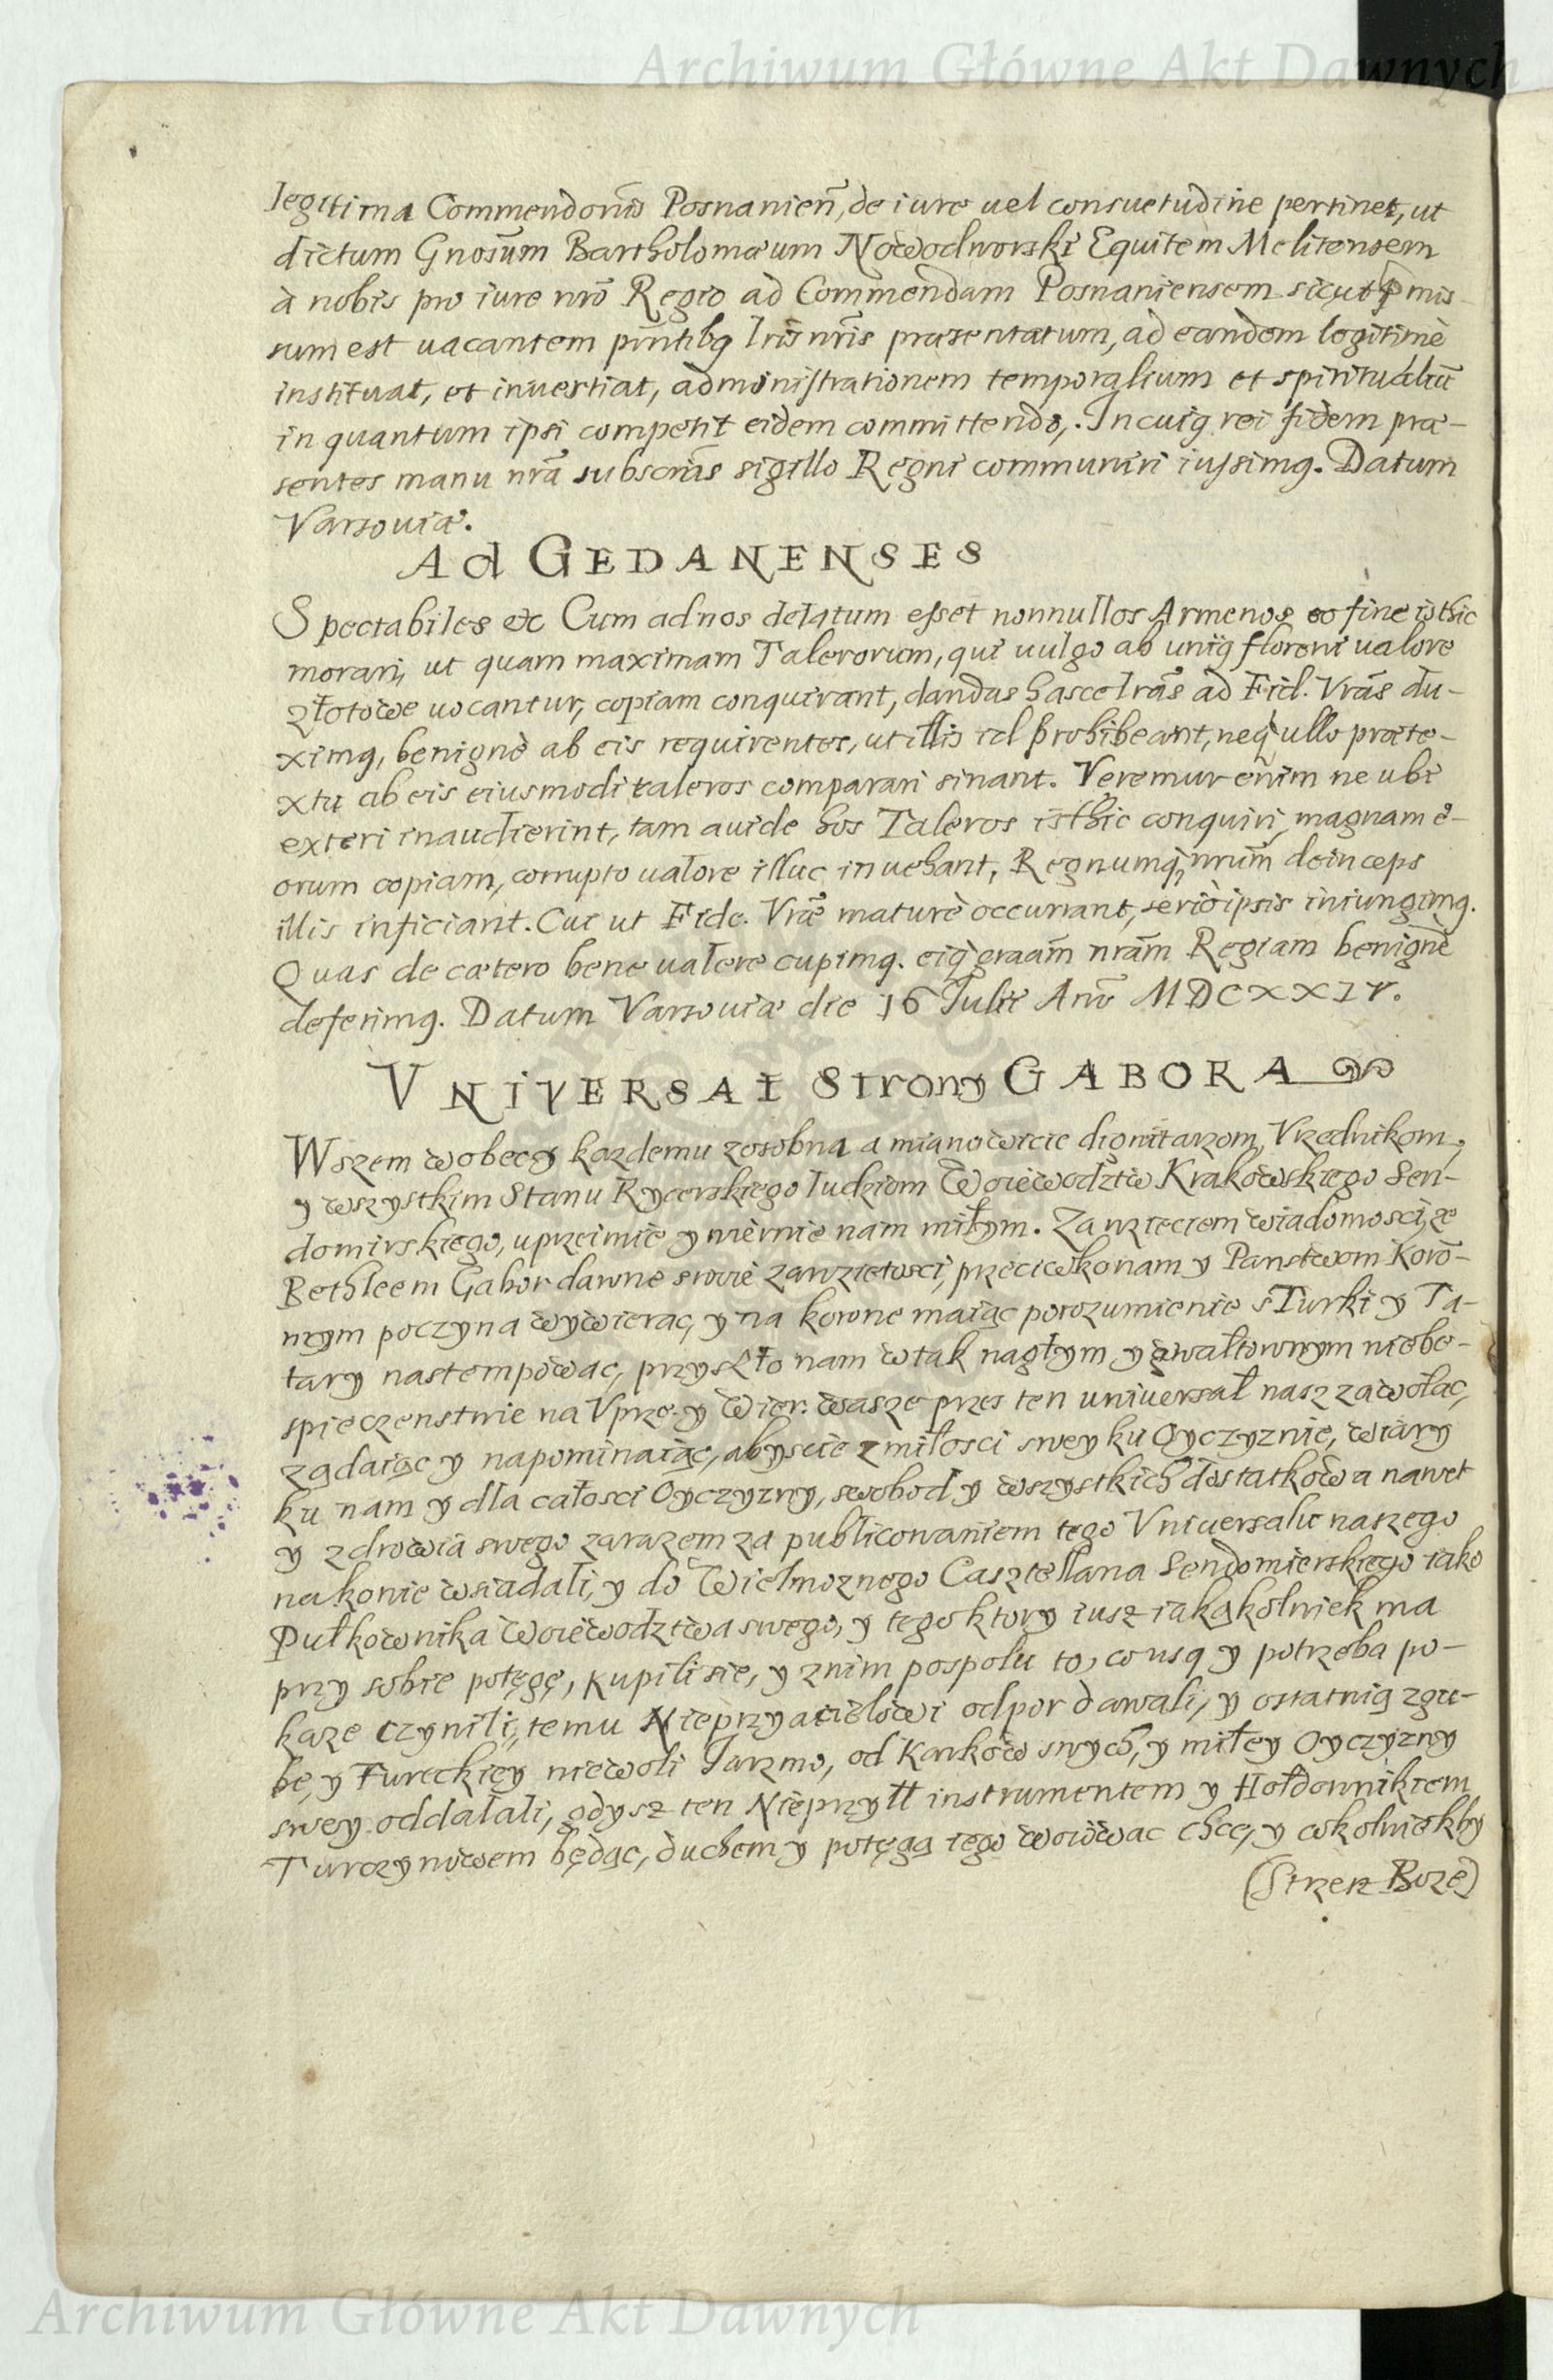 Archiwum Główne Akt Dawnych
legitima Commendonis Posnanien̄, de iure uel consuetudine pertinet, ut
dictum Gnosum Bartholomæum Nowodworski Equitem Melitensem
à nobis pro iure nro Regio ad Commendam Posnaniensem sicut p̄mis-
sum est uacantem pn̄tibq lris nris præsentatum, ad eandem legitimè
instituat, et inuestiat, administrationem temporalium et spiritualiū
in quantum ipsi competit eidem committendo,. In cuiq rei fidem præ-
sentes manu nrã subscrias sigillo Regni communiri iussimq. Datum
Varsouiæ.
Ad GEDANENSES
Spectabiles etc Cum ad nos delatum esset nonnullos Armenos eo fine isthic
morari, ut quam maximam Talerorum, qui uulgo ab uniq floreni ualore
złotowe uocantur, copiam conquirant, dandas hasce lrãs ad Fid. Vrãs du-
ximq, benignè ab eis requirentes, ut illis id prohibeant, neq ullo præte-
xtu ab eis eiusmodi taleros comparari sinant. Veremur enim ne ubi
exteri inaudierint, tam auide hos Taleros isthic conquiri, magnam e-
orum copiam, corrupto ualore illuc inuehant, Regnumq, nrum̄ deinceps
illis inficiant. Cui ut Fide. Vræ maturè occurrant, seriò ipsis iniungimq.
Quas de cætero bene ualere cupimq. eiq graam̄ nram̄ Regiam benignè
deferimq. Datum Varsouiæ die 16 Iulii Anno MDCXXIV.
VNIVERSAł Strony GABORA
Wszem wobec y kazdemu zosobna a mianowicie dignitarzom, Vrzednikom,
y wszystkim Stanu Rycerskiego ludziom Woiewodztw Krakowskiego Sen-
domirskiego, uprzeimie y wiernie nam miłym. Za wzieciem wiadomosci, ze
Bethleem Gabor dawne swoie zawzietosci, przeciwko nam y Panstwom Koro-
nnym poczyna wywierac, y na korone maiąc porozumienie s Turki y Ta-
tary nastempowac, przyszło nam w tak nagłym y gwałtownym niebe-
spieczenstwie na Vprze. y Wier. wasze przes ten uniuersał nasz zawołac,
ządaiąc y napominaiąc, abyscie z miłosci swey ku Oyczyznie, wiary
ku nam y dla całosci Oyczyzny, swobod y wszystkich dostatkow a nawet
y zdrowia swego zarazem za publicowaniem tego Vniuersału naszego
na konie wsiadali, y do Wielmoznego Casztellana Sendomierskiego iako
Pułkownika Woiewodztwa swego, y tego ktory iusz iakąkolwiek ma
przy sobie potęgę, kupili sie, y znim pospołu to, co usq y potrzeba po-
kaze czynili, temu Nieprzyacielowi odpor dawali, y ostatnią zgu-
bę, y Tureckięy niewoli Jarzmo, od Karkow swych, y miłey Oyczyzny
swey oddalali, gdysz ten Nieprzyłł instrumentem y Hołdownikiem
Turczynowem będąc, duchem y potęgą iego woiowac chce, y cokolwiekby
(Strzesz Boze)
Archiwum Główne Akt Dawnych